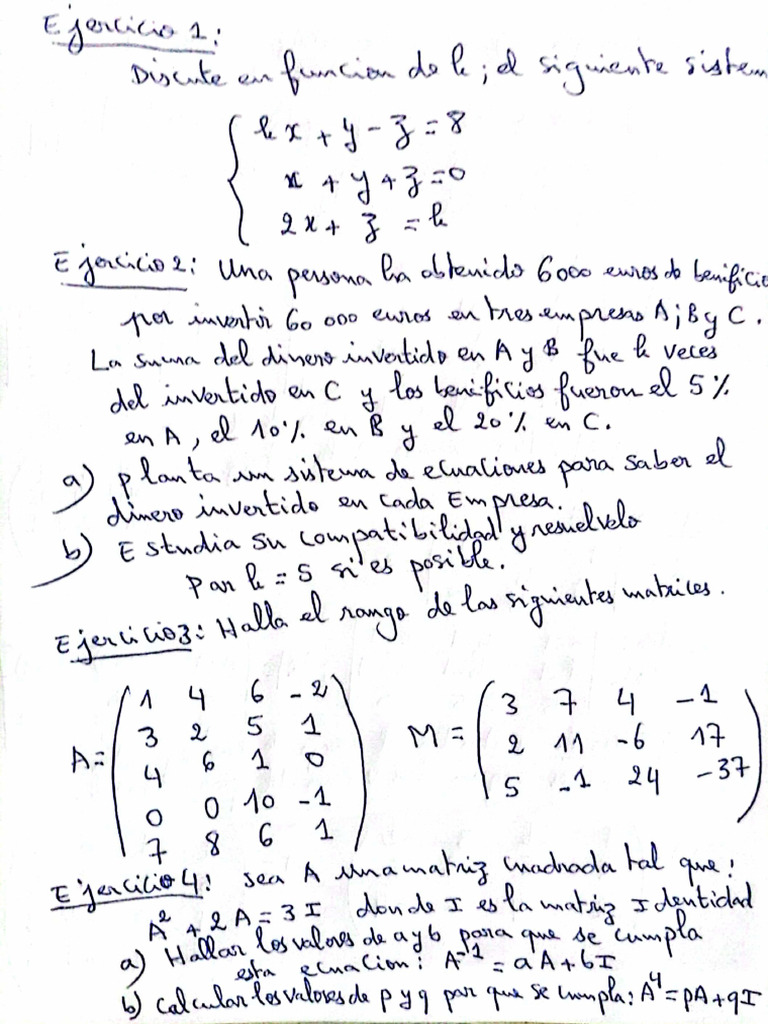 Ejercicio 1:
Discute en funcion de k ; el siguiente sistem
kx + y - z = 8
x + y + z = 0
2x + z = k
Ejercicio 2: Una persona ha obtenido 6000 euros de benificio
por invertir 60 000 euros en tres empresas A; B y C.
La suma del dinero invertido en A y B fue k veces
del invertido en C y los benificios fueron el 5%
en A, el 10% en B y el 20% en C.
a) planta un sistema de ecuaciones para saber el
dinero invertido en cada Empresa.
b) Estudia su compatibilidad y resuelvelo
Par k = 5 si es posible.
Ejercicio 3: Halla el rango de las siguientes matrices.
1 4 6 -2 3 7 4 -1
A= 3 2 5 1 M = 2 11 -6 17
4 6 1 0 5 -1 24 -37
0 0 10 -1
7 8 6 1
Ejercicio 4: sea A una matriz cuadrada tal que:
A² + 2A = 3I donde I es la matriz Identidad
a) Hallar los valores de a y b para que se cumpla
esta ecuacion: A⁻¹ = aA + bI
b) calcular los valores de p y q par que se cumpla: A⁴ = pA + qI